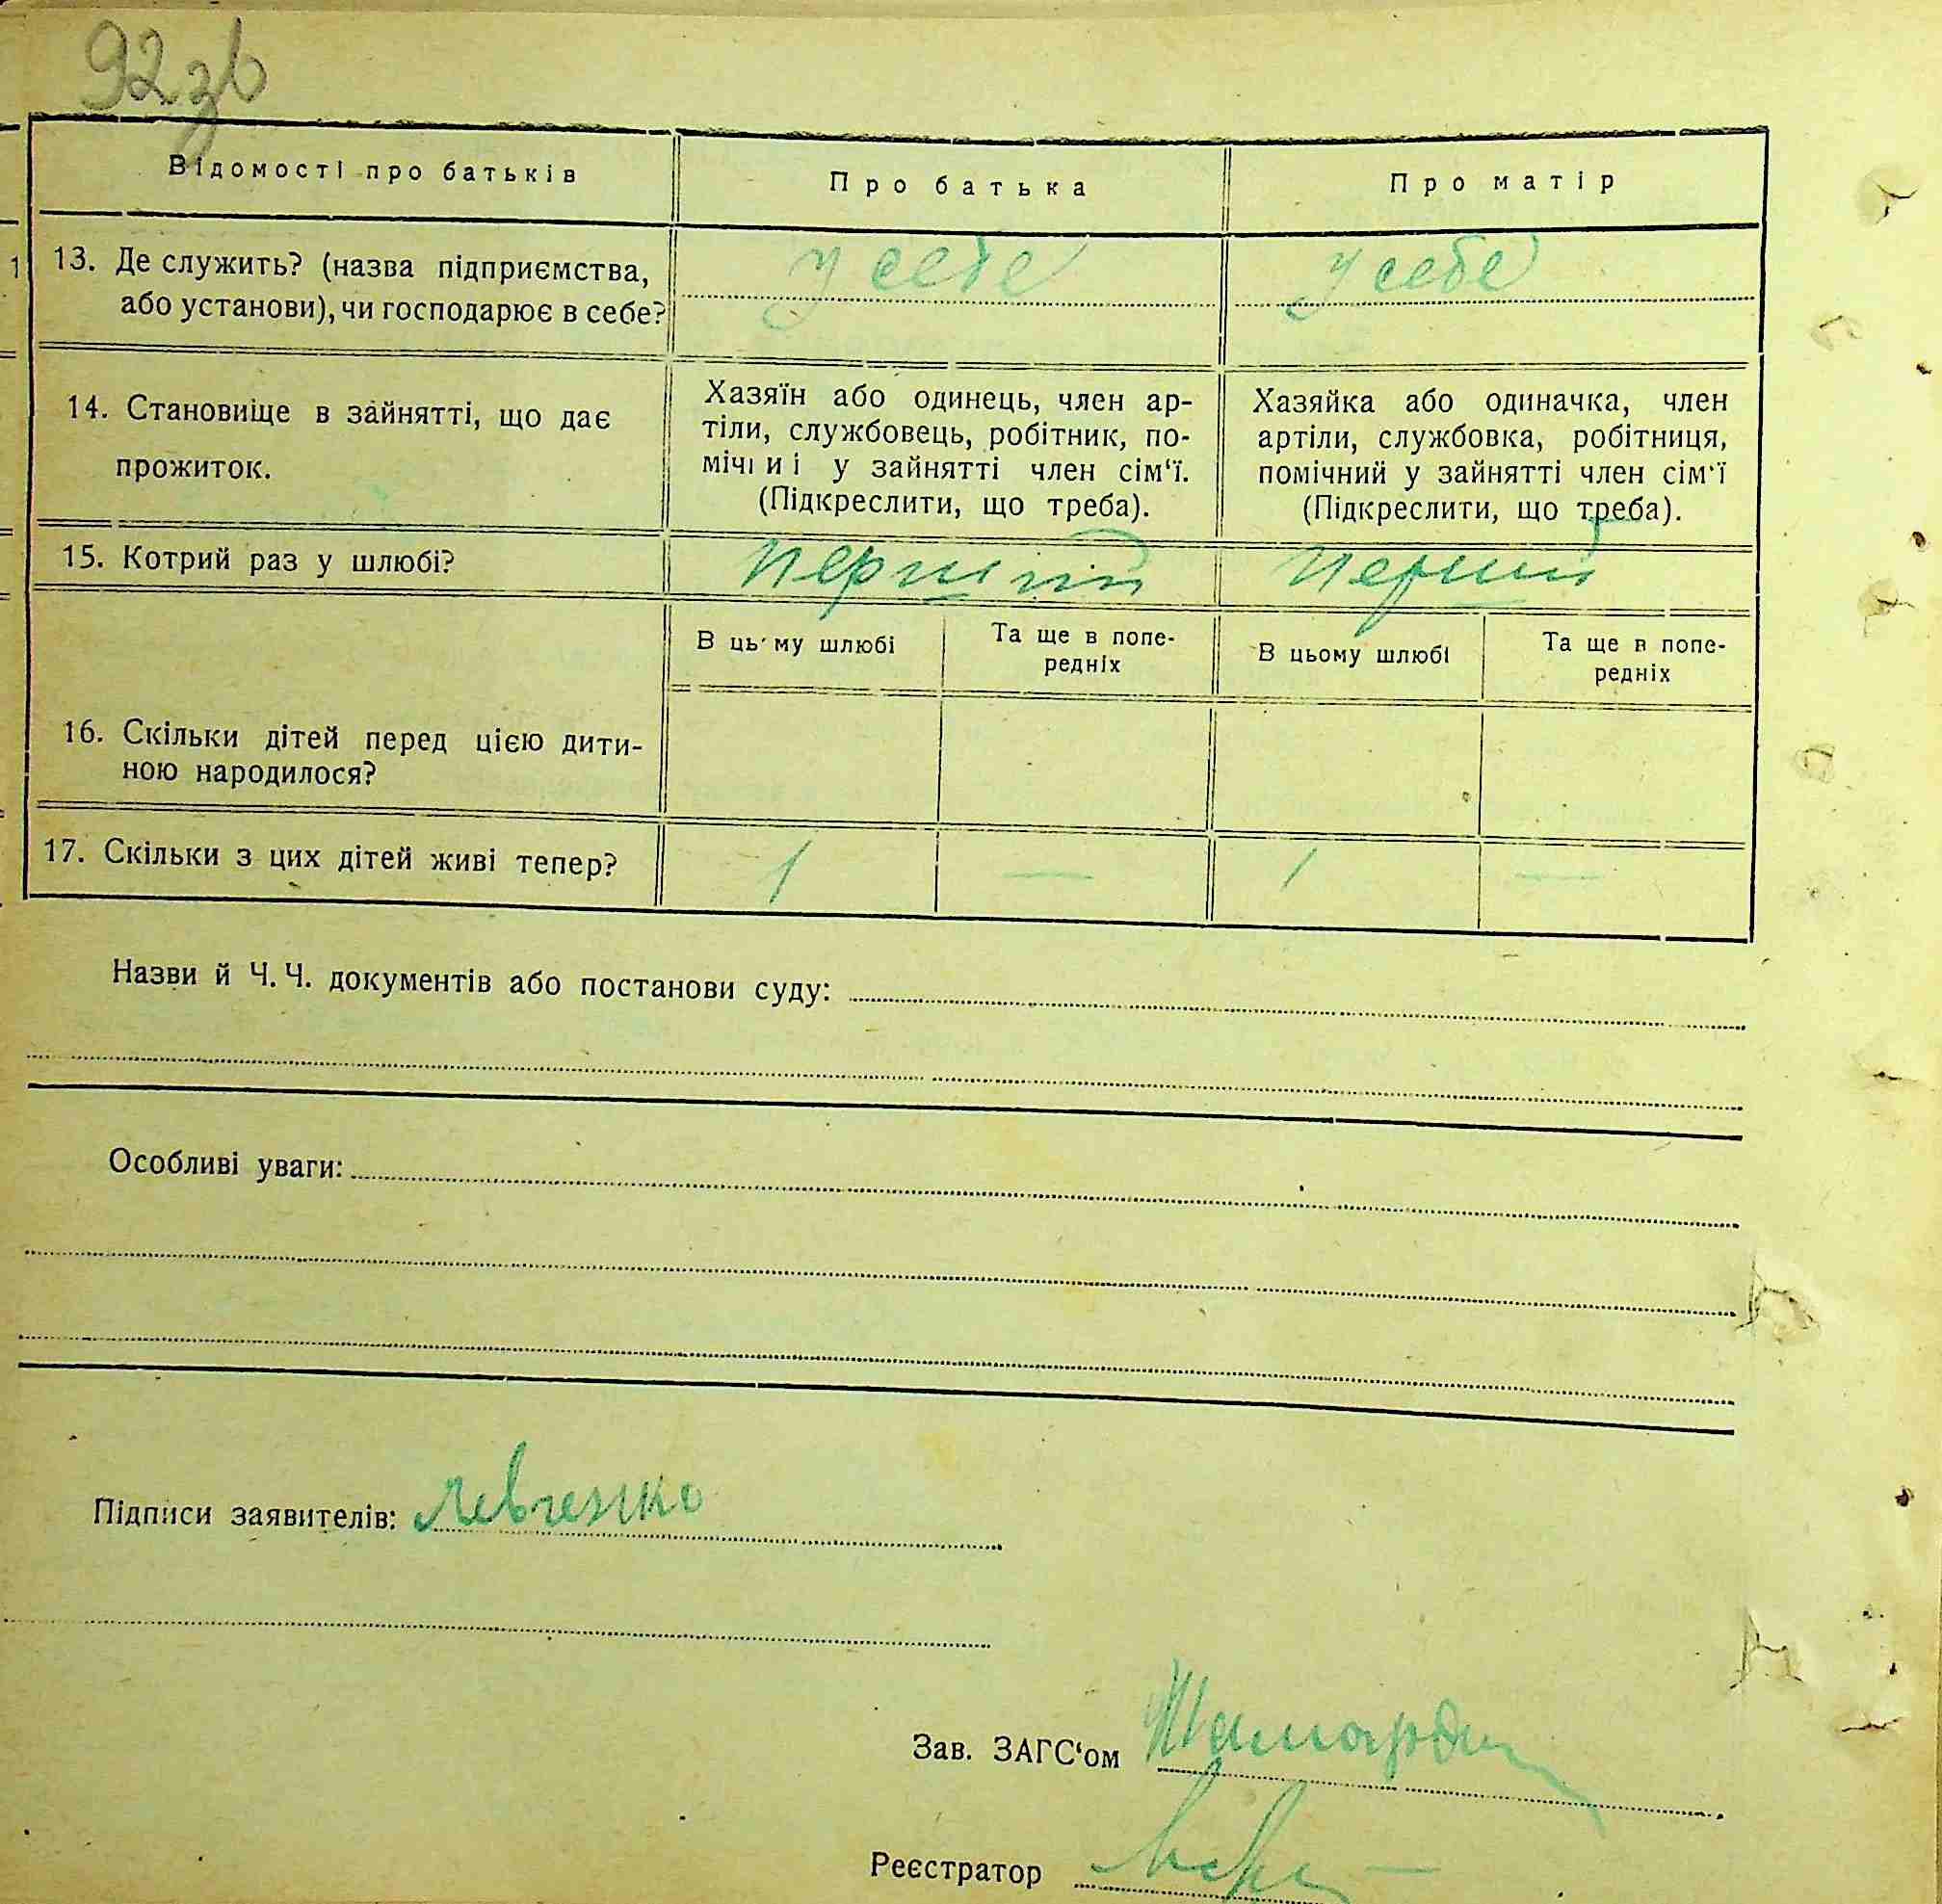 92зв
Відомості про батьків
Про батька
Про матір
13. Де служить? (назва підприємства,
або установи), чи господарює в себе?
у себе
у себе
14. Становище в зайнятті, що дає
прожиток.
Хазяїн або одинець, член ар-
тіли, службовець, робітник, по-
мічниі у зайнятті член сім'ї.
(Підкреслити, що треба).
Хазяйка або одиначка, член
артіли, службовка, робітниця,
помічний у зайнятті член сім'ї
(Підкреслити, що треба).
15. Котрий раз у шлюбі?
перший
перший
В цьому шлюбі
Та ще в попе-
редніх
В цьому шлюбі
Та ще в попе-
редніх
16. Скільки дітей перед цією дити-
ною народилося?
17. Скільки з цих дітей живі тепер?
1
—
1
—
Назви й Ч. Ч. документів або постанови суду:
Особливі уваги:
Підписи заявителів: Левченко
Зав. ЗАГС'ом
Реєстратор